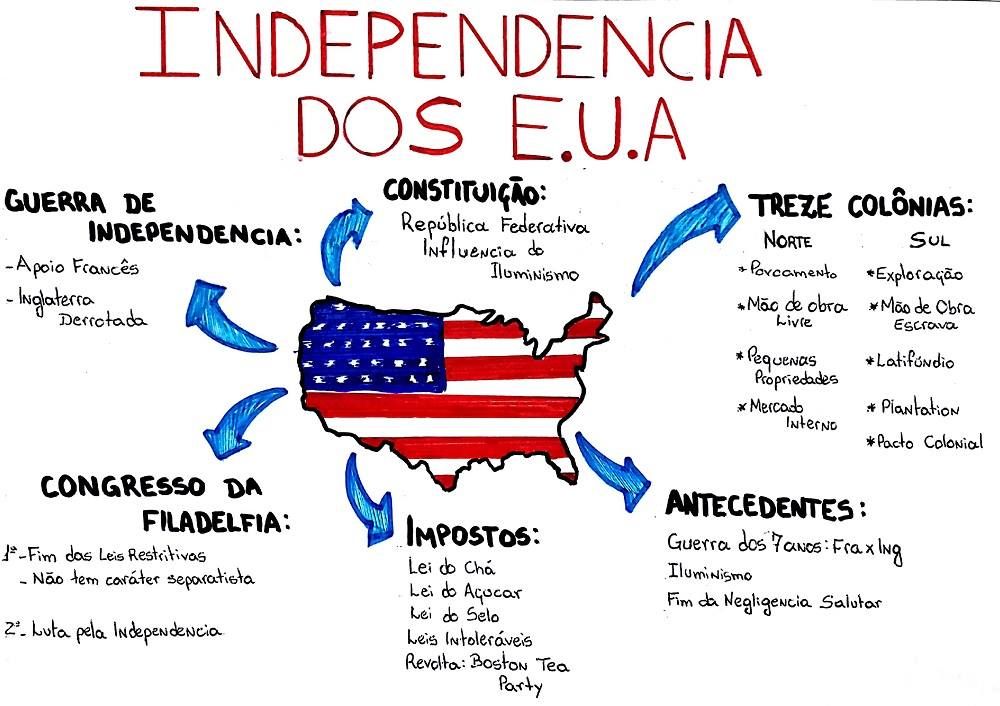 INDEPENDENCIA
DOS E.U.A
GUERRA DE
INDEPENDENCIA:
- Apoio Francês
- Inglaterra
Derrotada
CONSTITUIÇÃO:
República Federativa
Influencia do
Iluminismo
TREZE COLÔNIAS:
NORTE
* Povoamento
* Mão de obra
Livre
* Pequenas
Propriedades
* Mercado
Interno
SUL
* Exploração
* Mão de Obra
Escrava
* Latifúndio
* Plantation
* Pacto Colonial
CONGRESSO DA
FILADELFIA:
1º - Fim das Leis Restritivas
- Não tem caráter separatista
2º - Luta pela Independencia
IMPOSTOS:
Lei do Chá
Lei do Açucar
Lei do Selo
Leis Intoleráveis
Revolta: Boston Tea
Party
ANTECEDENTES:
Guerra dos 7 anos: Fra x Ing
Iluminismo
Fim da Negligencia Salutar